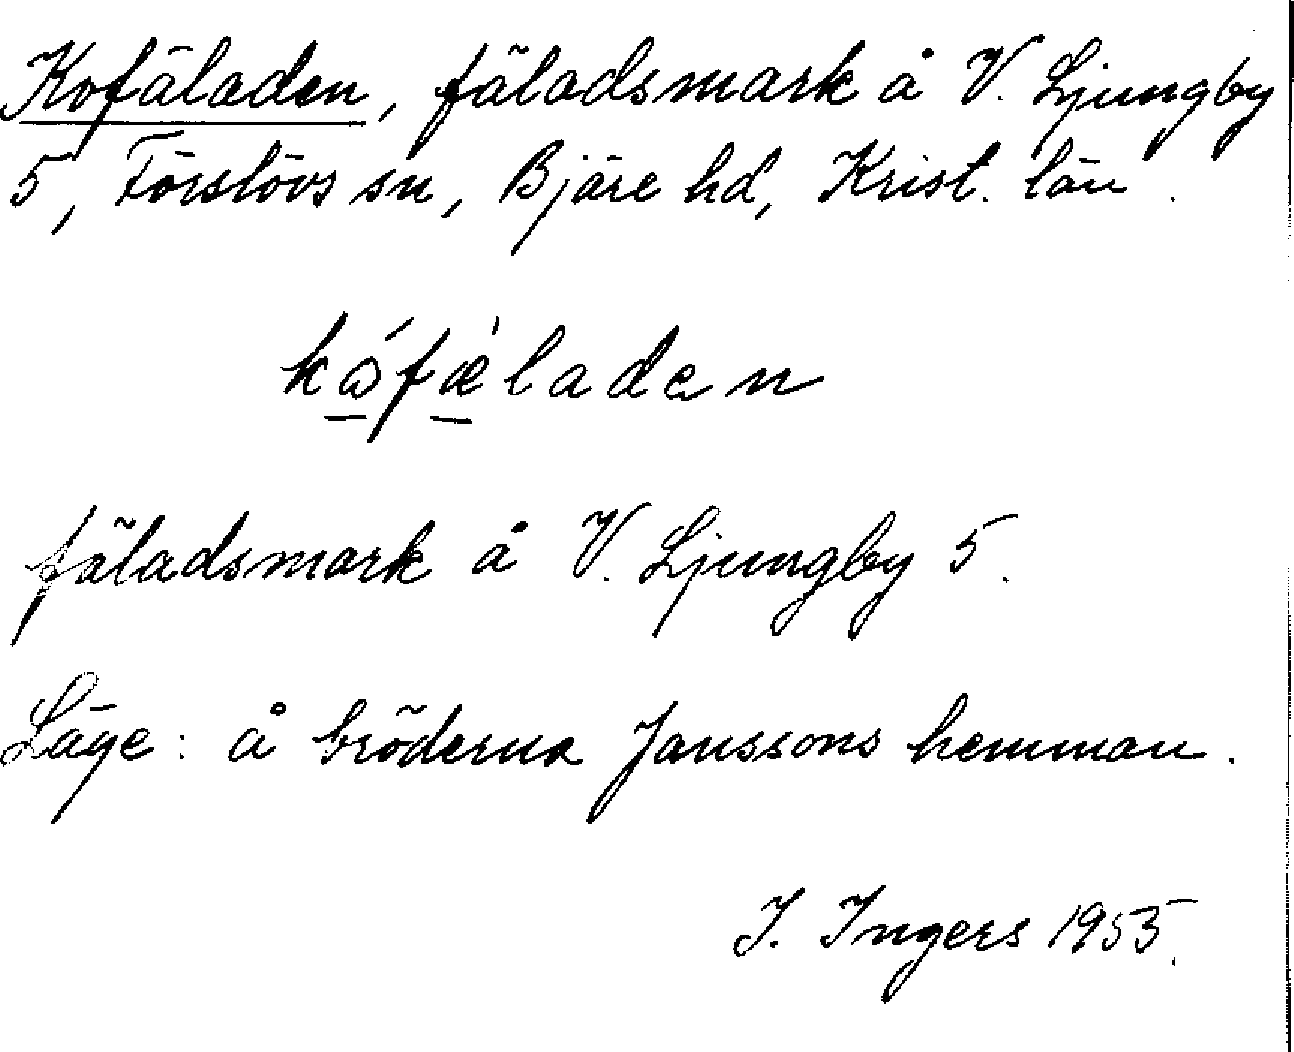 Kofäladen, fäladsmark å V. Ljungby
5, Förslövs sn, Bjäre hd, Krist. län.
kǻfæ̀laden
fäladsmark å V. Ljungby 5.
Läge: å bröderna Janssons hemman.
I. Ingers 1955.